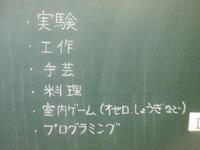 ・実験
・工作
・手芸
・料理
・室内ゲーム(オセロ、しょうぎなど)
・プログラミング